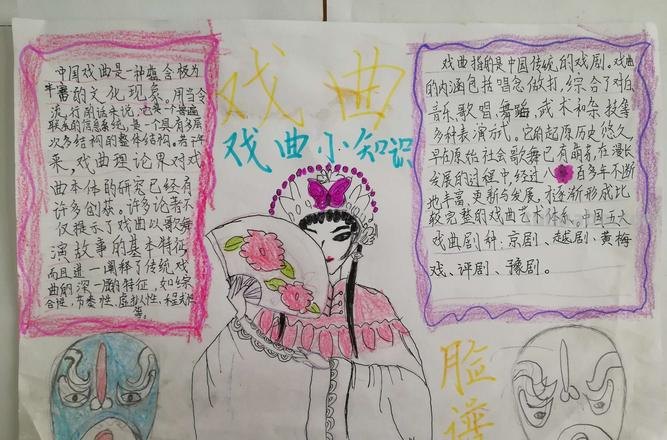 戏曲
戏曲小知识
中国戏曲是一种蕴含极为
丰富的文化现象，用当今
流行的话来说，它是一个普遍
联系的信息系统，是一个具有多层
以多结构的整体结构。若干年
来，戏曲理论界对戏
曲本体的研究已经有
许多创获。许多论者不
仅揭示了戏曲以歌舞
演故事的基本特征
而且进一阐释了传统戏
曲的深一层的特征，如综
合性、节奏性、虚拟性、程式性
等。
戏曲指的是中国传统的戏剧。戏曲
的内涵包括唱念做打，综合了对白
音乐、歌唱、舞蹈、武术和杂技等
多种表演方式。它的起源历史悠久，
早在原始社会歌舞已有萌芽，在漫长
发展的过程中，经过八百多年不断
地丰富、更新与发展，才逐渐形成比
较完整的戏曲艺术体系。中国五大
戏曲剧种：京剧、越剧、黄梅
戏、评剧、豫剧。
脸
谱